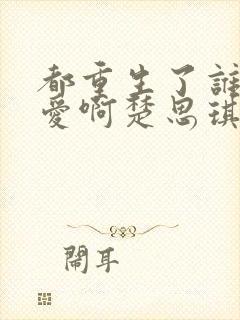 都重生了誰
愛啊楚思琪
鬧耳